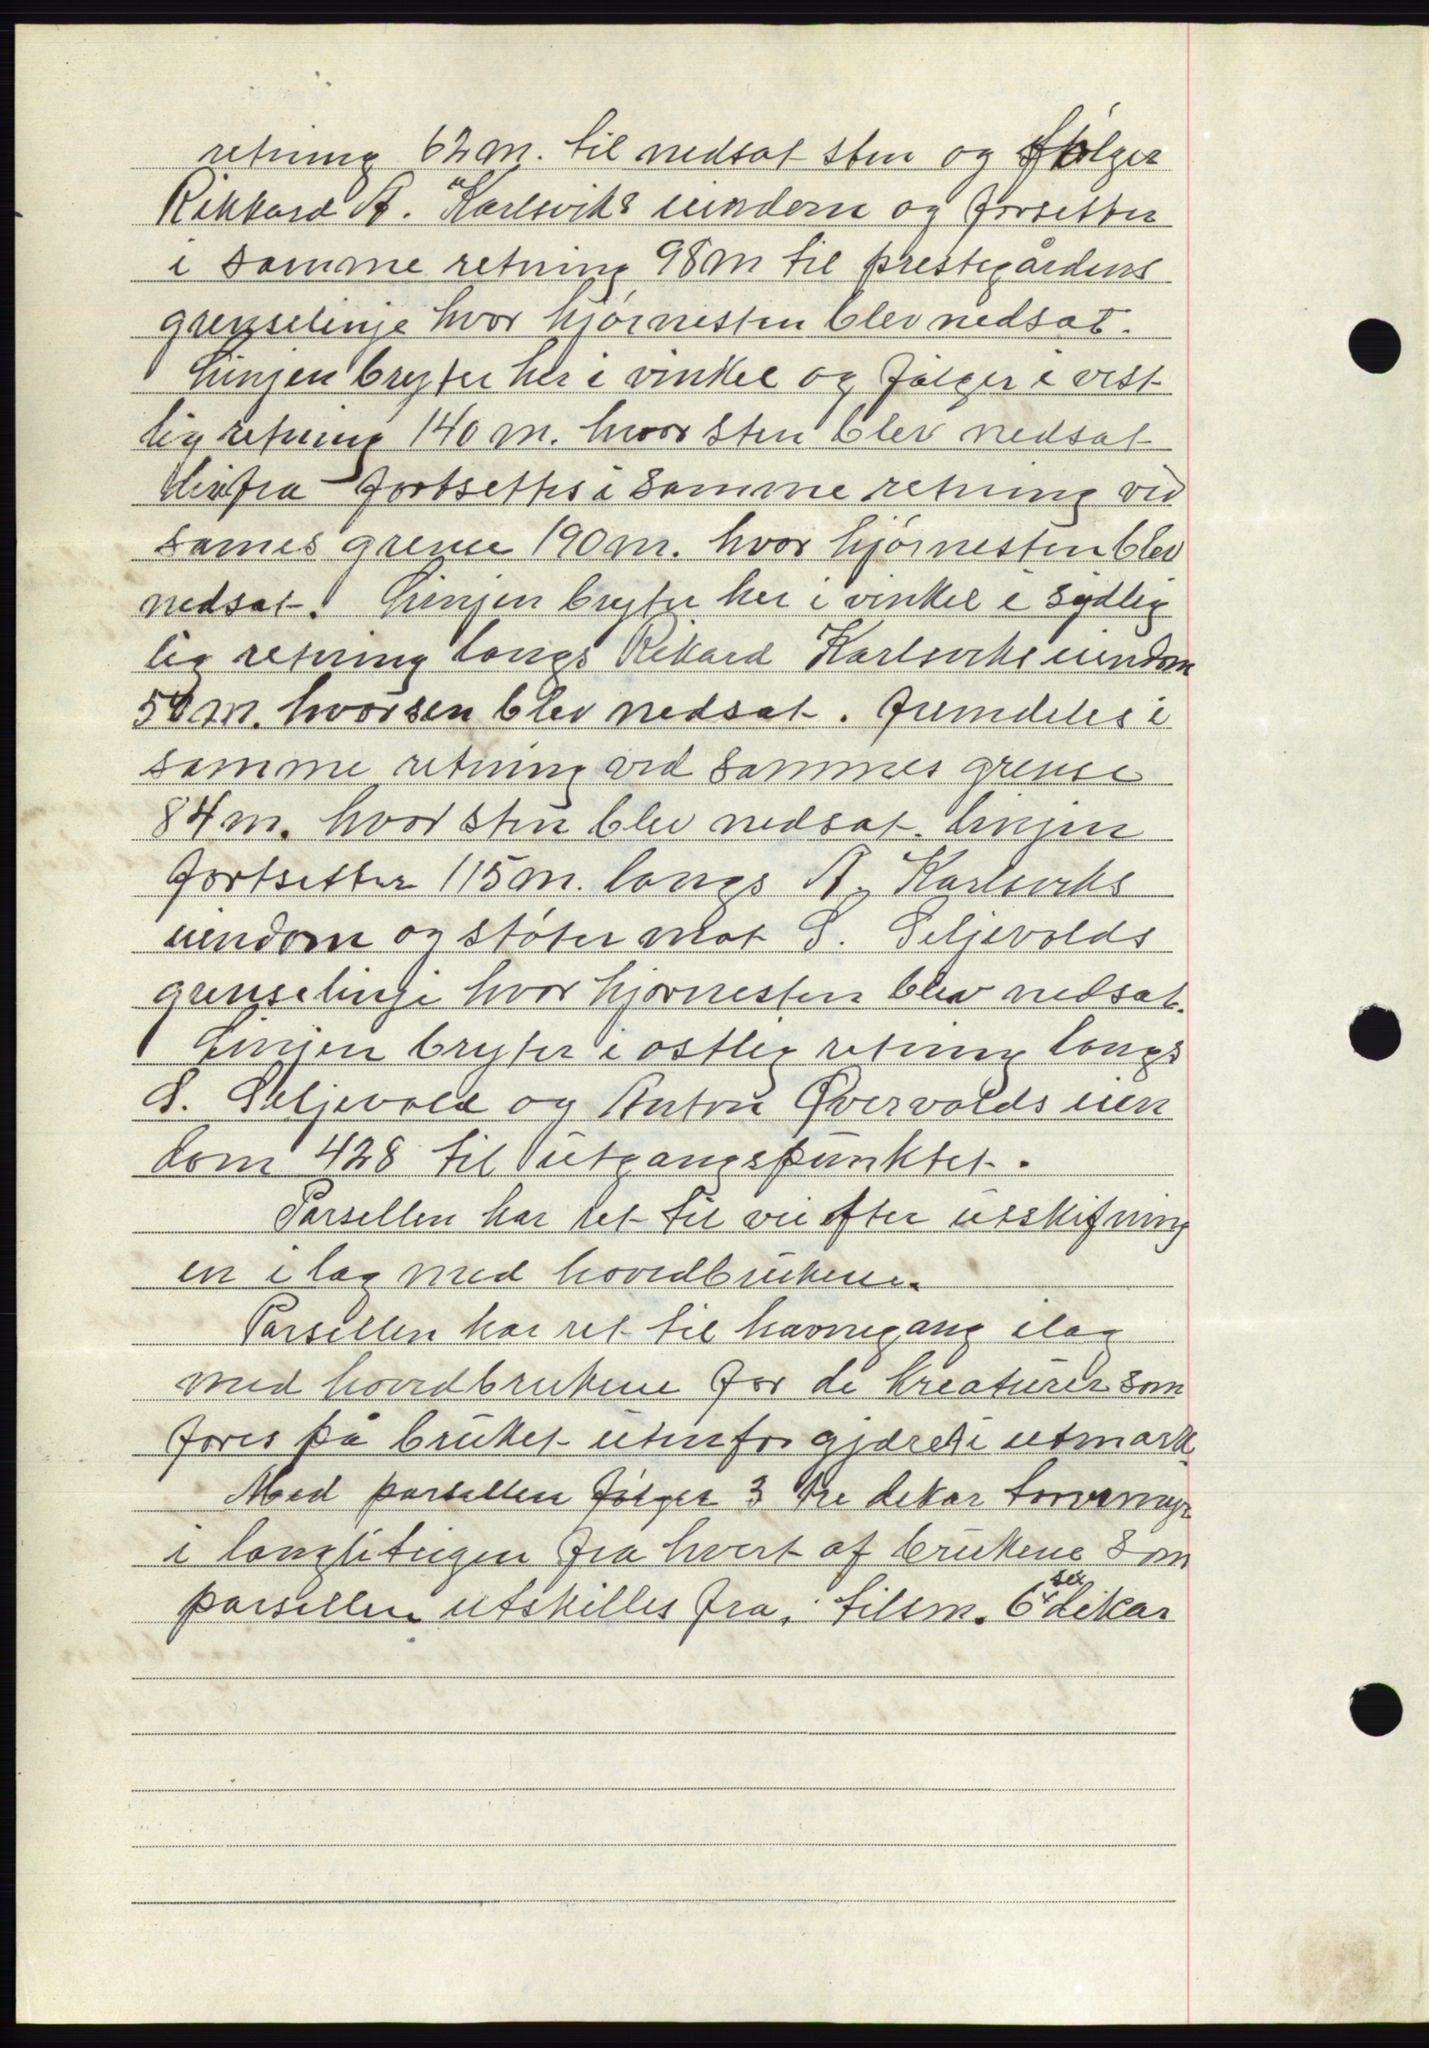 retning 62 m. til nedsat sten og følger
Rikkard A. Karlsviks eiendom og forsetter
i samme retning 98 m til prestegårdens
grenselinje hvor hjørnesten blev nedsat.
Linjen bryter her i vinkel og følger i vest
lig retning 140 m. hvor sten blev nedsat
Herfra fortsettes i samme retning ved
sames grense 190 m. hvor hjørnesten blev
nedsat. Linjen bryter her i vinkel i sydlig
lig retning langs Rikard Karlsviks eiendom
m. hvor sen blev nedsat. fremdeles i
samme retning ved sammes grense
84 m. hvor sten blev nedsat. Linjen
fortsetter 115 m. langs A. Karlsviks
eiendom og støter mot S. Seljevolds
grenselinje hvor hjørnesten blev nedsat.
Linjen bryter i østlig retning langs
S. Seljevold og Anton Øvervolds eien
dom 428 til utgangspunktet.
Parsellen har ret til vei efter utskifning
en i lag med hovedbrukene.
Parsellen har ret til havnegang ilag
med hovedbrukene for de kreaturer som
fores på bruket utenfor gjærdet i utmark.
Med parsellen følger 3 tre dekar torvmyr
i fra hvert af brukene som
parsellen utskilles fra, tilsm. 6 sex dekar